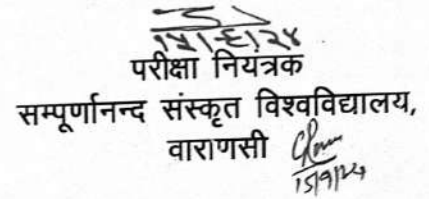 परीक्षा नियंत्रक
सम्पूर्णानन्द संस्कृत विश्वविद्यालय,
वाराणसी
15/9/24